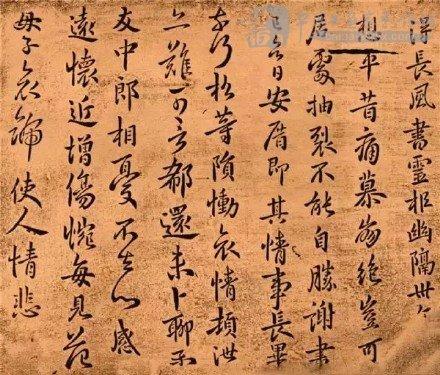 長風書靈柩幽隔
想平昔痛慕崩絕豈可
居處抽裂不能自勝謝書
安厝即其情事長畢
松等隕慟哀情頓泄
亦難可言郗還未卜聊示
友中郎相憂不去心感
遠懷近增傷惋每見范
母子哀號使人情悲